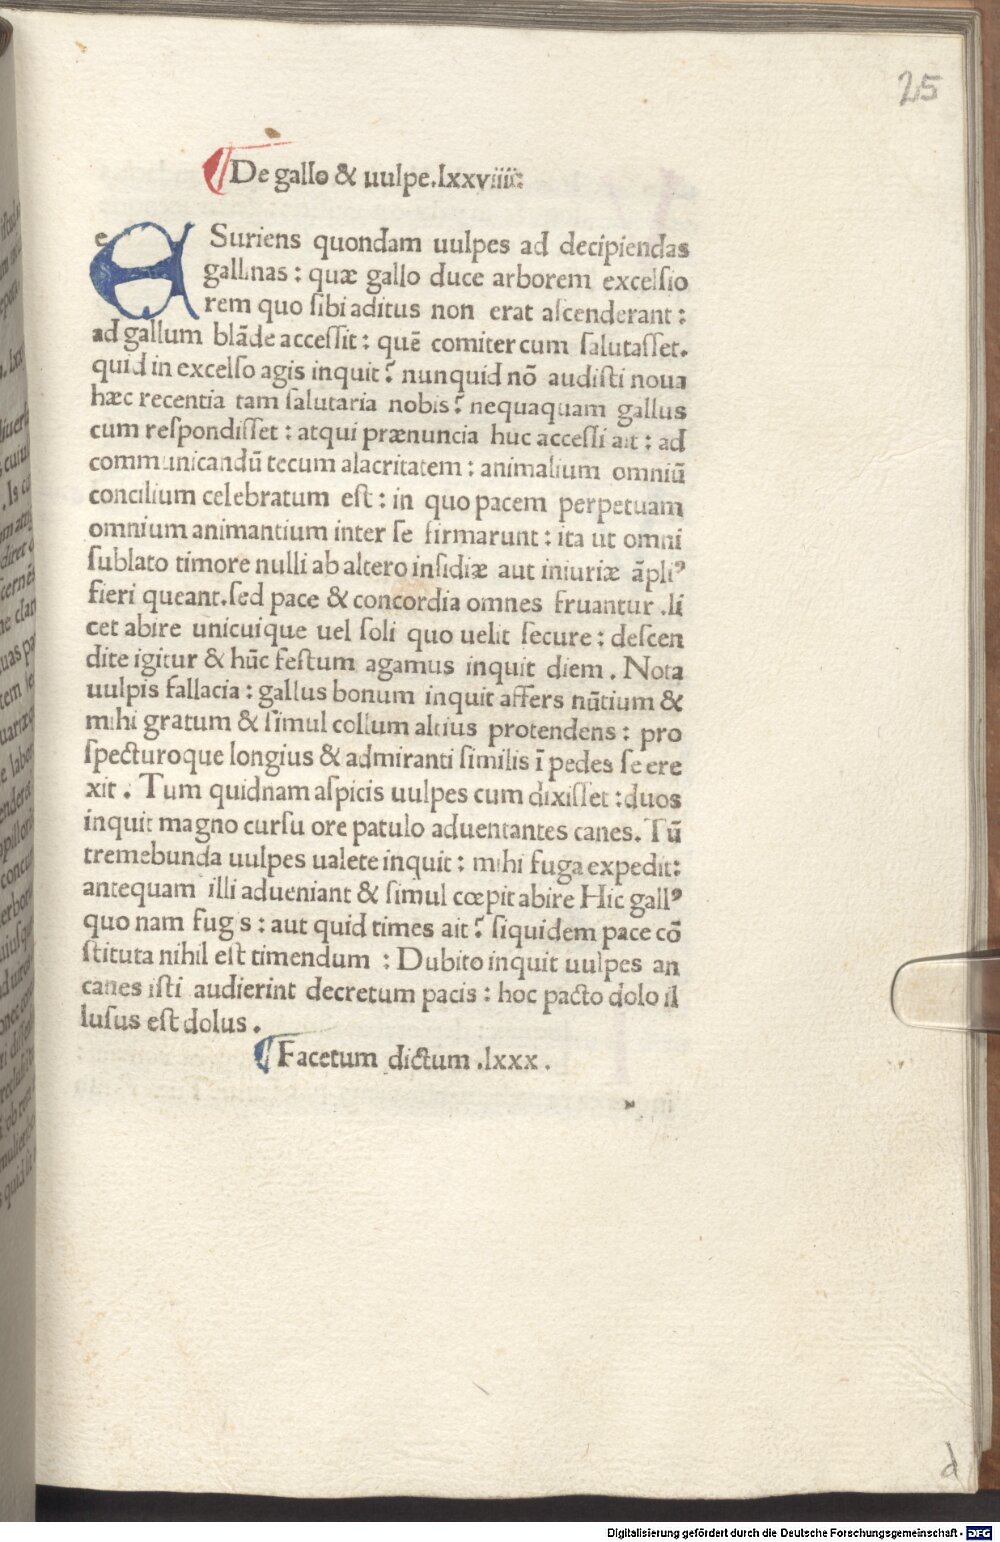 25
De gallo & uulpe.lxxviiii.
e ESuriens quondam uulpes ad decipiendas
gallinas : quæ gallo duce arborem excelſio
rem quo ſibi aditus non erat aſcenderant :
ad gallum blāde acceſſit : quē comiter cum ſalutaſſet.
quid in excelſo agis inquit? nunquid nō audiſti noua
hæc recentia tam ſalutaria nobis? nequaquam gallus
cum reſpondiſſet : atqui prænuncia huc acceſſi ait : ad
communicandū tecum alacritatem : animalium omniū
concilium celebratum eſt : in quo pacem perpetuam
omnium animantium inter ſe firmarunt : ita ut omni
ſublato timore nulli ab altero inſidiæ aut iniuriæ āpliꝰ
fieri queant.ſed pace & concordia omnes fruantur .li
cet abire unicuique uel ſoli quo uelit ſecure : deſcen
dite igitur & hūc feſtum agamus inquit diem . Nota
uulpis fallacia : gallus bonum inquit affers nūtium &
mihi gratum & ſimul collum altius protendens : pro
ſpecturoque longius & admiranti ſimilis ī pedes ſe ere
xit . Tum quidnam aſpicis uulpes cum dixiſſet : duos
inquit magno curſu ore patulo aduentantes canes. Tū
tremebunda uulpes ualete inquit : mihi fuga expedit:
antequam illi adueniant & ſimul cœpit abire Hic gallꝰ
quo nam fugis : aut quid times ait? ſiquidem pace cō
ſtituta nihil eſt timendum : Dubito inquit uulpes an
canes iſti audierint decretum pacis : hoc pacto dolo il
luſus eſt dolus .
Facetum dictum .lxxx .
d
Digitalisierung gefördert durch die Deutsche Forschungsgemeinschaft - DFG